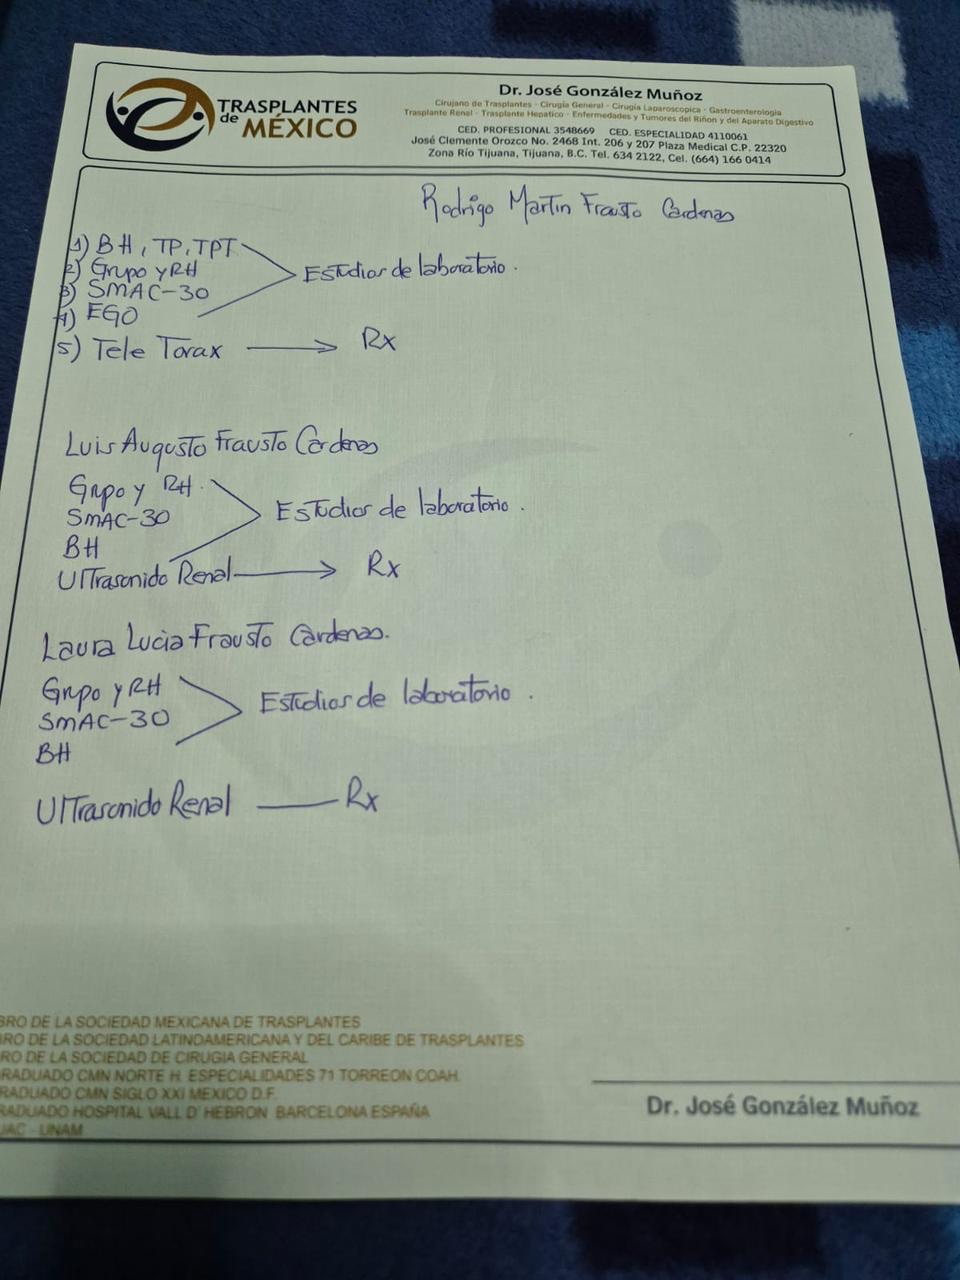 TRASPLANTES
de MÉXICO
Dr. José González Muñoz
Cirujano de Trasplantes - Cirugía General - Cirugía Laparoscopica - Gastroenterologia
Trasplante Renal - Trasplante Hepatico - Enfermedades y Tumores del Riñon y del Aparato Digestivo
CED. PROFESIONAL 3548669 CED. ESPECIALIDAD 4110061
José Clemente Orozco No. 2468 Int. 206 y 207 Plaza Medical C.P. 22320
Zona Río Tijuana, Tijuana, B.C. Tel. 634 2122, Cel. (664) 166 0414
Rodrigo Martin Frausto Cardenas
1) BH, TP, TPT
2) Grupo y RH
Estudios de laboratorio.
3) SMAC-30
4) EGO
5) Tele Torax Rx
Luis Augusto Frausto Cardenas
Grupo y RH.
SMAC-30
Estudios de laboratorio.
BH
Ultrasonido Renal Rx
Laura Lucia Frausto Cardenas.
Grupo y RH
Estudios de laboratorio.
SMAC-30
BH
Ultrasonido Renal Rx
BRO DE LA SOCIEDAD MEXICANA DE TRASPLANTES
BRO DE LA SOCIEDAD LATINOAMERICANA Y DEL CARIBE DE TRASPLANTES
RO DE LA SOCIEDAD DE CIRUGIA GENERAL
RADUADO CMN NORTE H. ESPECIALIDADES 71 TORREON COAH.
RADUADO CMN SIGLO XXI MEXICO D.F.
RADUADO HOSPITAL VALL D' HEBRON BARCELONA ESPAÑA
UAC - UNAM
Dr. José González Muñoz